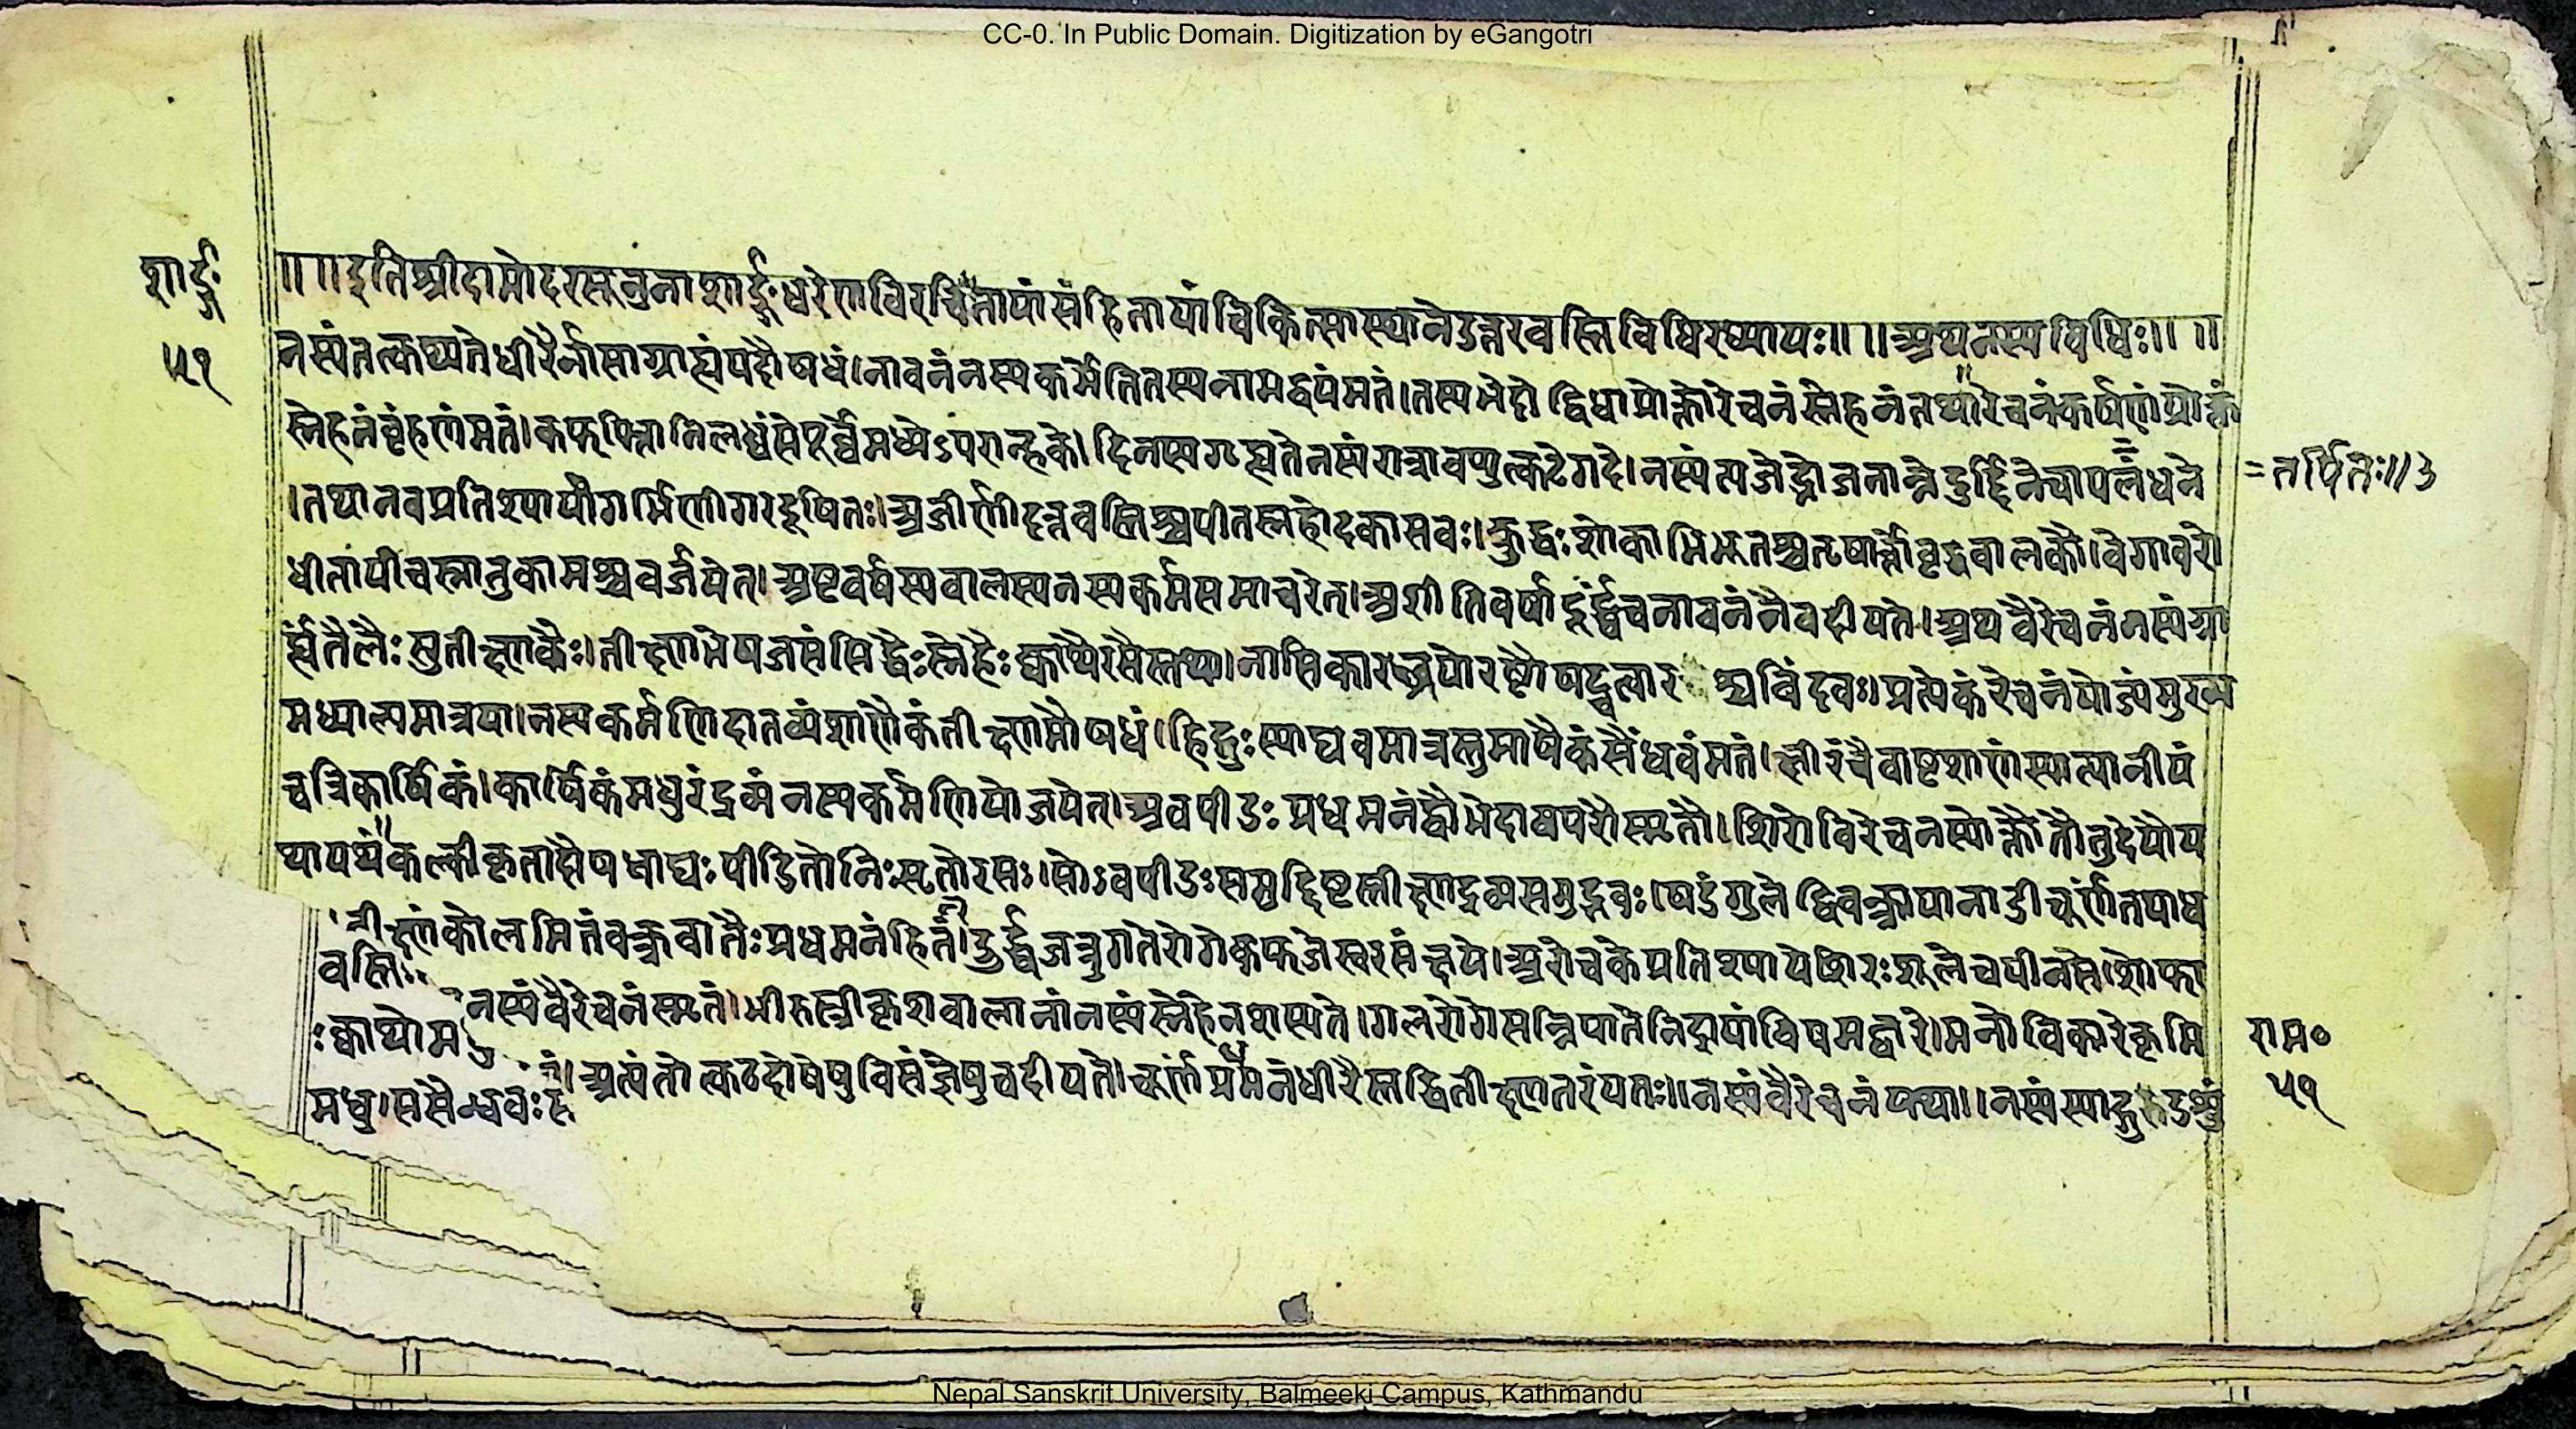 CC-0. In Public Domain. Digitization by eGangotri
शार्ङ्गः
५१
॥ ॥इतिश्रीदामोदरसूनुनाशार्ङ्गधरेणविरचितायांसंहितायांचिकित्सास्थानेउत्तरवस्तिविधिरध्यायः॥ ॥अथनस्यविधिः॥ ॥
नस्यंतत्कथ्यतेधीरैर्नासाग्राह्यंयदौषधं।नावनंनस्यकर्मेतितस्यनामद्वयंमतं।तस्यभेदोद्विधाप्रोक्तोरेचनंस्नेहनंतथारेचनंकर्षणंप्रोक्तं
स्नेहनंवृंहणंमतं।कफपित्तानिलध्वंसेपूर्व्वेमध्येऽपरान्हके।दिनस्यगृह्यतेनस्यंरात्रावप्युत्कटेगदे।नस्यंत्यजेद्भोजनान्तेदुर्द्दिनेचापलंघने
।तथानवप्रतिश्यायीगर्भिणीगरदूषितः।अजीर्णीदत्तवस्तिश्चपीतस्नेहोदकासवः।क्रुद्धःशोकाभिभूतश्चतृषार्त्तोवृद्धवालकौ।वेगावरो
=तर्पितः॥३
धीतापीचस्नातुकामश्चवर्जयेत्।अष्टवर्षस्यवालस्यनस्यकर्मसमाचरेत्।अशीतिवर्षादूर्द्ध्वंचनावनंनैवदीयते।अथवैरेचनंनस्यंग्रा
र्ह्यंतैलैःसुतीक्ष्णकैः।तीक्ष्णभेषजसंसिद्धैःस्नेहैःक्वाथैरसैस्तथा।नासिकारन्ध्रयोरष्टौषट्चत्वारश्चविंदवः।प्रत्येकंरेचनंयोज्यंमुख्य
मध्याल्पमात्रया।नस्यकर्मणिदातव्यंशाणैकंतीक्ष्णमौषधं।हिङ्गुःस्याद्यवमात्रस्तुमाषैकंसैंधवंमतं।क्षीरंचैवाष्टशाणंस्यात्पानीयं
चत्रिकार्षिकं।कार्षिकंमधुरंद्रव्यंनस्यकर्मणियोजयेत्।अवपीडःप्रधमनंद्वौभेदावपरौस्मृतौ।शिरोविरेचनस्योक्तौतौतुदेयौय
थायथंकल्कीकृतादौषधाद्यःपीडितोनिःसृतोरसः।सोऽवपीडःसमुद्दिष्टस्तीक्ष्णद्रव्यसमुद्भवः।षडंगुलेद्विवक्त्रायानाडीचूर्णंतयाध
तीक्ष्णंकोलमितंवक्त्रवातैःप्रधमनंहितं।ऊर्द्ध्वजत्रुगतेरोगेकफजेस्वरसंक्षये।अरोचकेप्रतिश्यायेशिरःशूलेचपीनसे।शोफा
वस्तिः नस्यंवैरेचनंस्मृतं।भीरुस्त्रीकृशवालानांनस्यंस्नेहेनशस्यते।गलरोगेसन्निपातेनिद्रायांविषमज्वरे।मनोविकारेकृमि
रामः
५१
:क्वाथोम
अत्यंतोत्कटदोषेषुविसंज्ञेषुचदीयते।चूर्णंप्रधमनंधीरैस्तद्धितीक्ष्णतरंयतः॥नस्यंवैरेचनंयथा॥नस्यंस्याद्गुडशुं
मधु।ससैन्धवः
Nepal Sanskrit University, Balmeeki Campus, Kathmandu